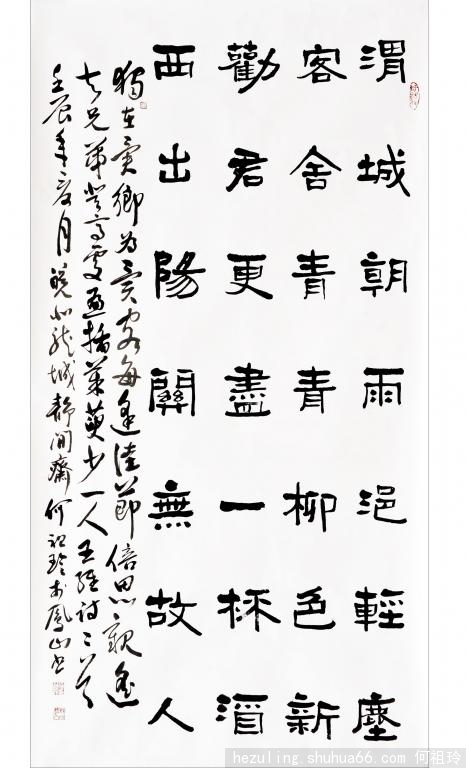 渭城朝雨浥輕塵
客舍青青柳色新
勸君更盡一杯酒
西出陽關無故人
獨在異鄉為異客每逢佳節倍思親遙
知兄弟登高處遍插茱萸少一人王維詩二首
壬辰年夏月於龍城靜閒齋何祖玲書
hezuling.shuhua66.com 何祖玲